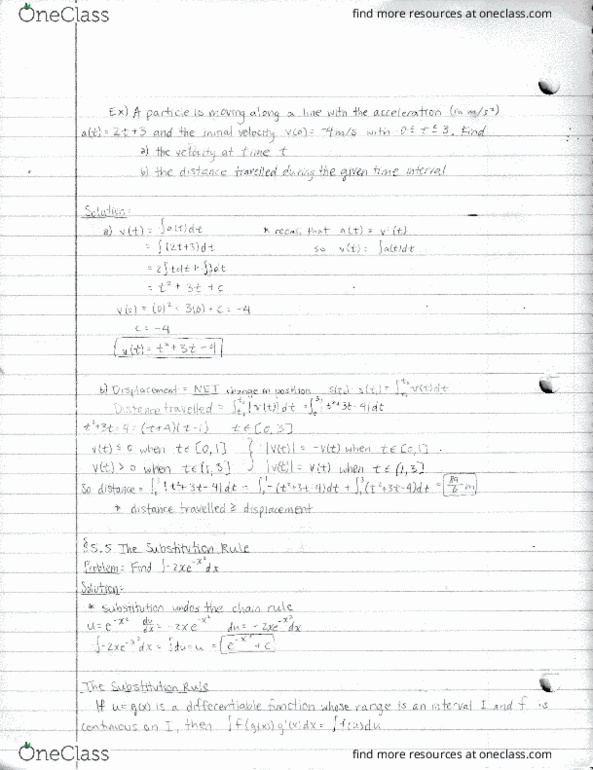 OneClass
find more resources at oneclass.com
Ex) A particle is moving along a line with the acceleration (in m/s²)
a(t) = 2t+3 and the initial velocity v(0) = -4m/s with 0 ≤ t ≤ 3. Find
a) the velocity at time t
b) the distance travelled during the given time interval
Solution:
a) v(t) = ∫a(t)dt * recall that a(t) = v'(t)
= ∫(2t+3)dt so v(t) = ∫a(t)dt
= 2∫tdt + ∫3dt
= t² + 3t + c
v(0) = (0)² + 3(0) + c = -4
c = -4
v(t) = t² + 3t - 4
b) Displacement = NET change in position
Distance travelled = ∫|v(t)|dt = ∫₀³|t²+3t-4|dt
t²+3t-4 = (t+4)(t-1) t∈[0,3]
v(t) ≤ 0 when t∈[0,1] } |v(t)| = -v(t) when t∈[0,1].
v(t) > 0 when t∈(1,3] } |v(t)| = v(t) when t∈(1,3]
So distance = ∫₀³|t²+3t-4|dt = ∫₀¹-(t²+3t-4)dt + ∫₁³(t²+3t-4)dt = 89/6 m
* distance travelled ≥ displacement
§5.5 The Substitution Rule
Problem: Find ∫-2xe^-x²dx
Solution:
* substitution undoes the chain rule
u = e^-x² du/dx = -2xe^-x² du = -2xe^-x²dx
∫-2xe^-x²dx = ∫du = u = e^-x² + c
The Substitution Rule
If u = g(x) is a differentiable function whose range is an interval I and f is
continuous on I, then ∫f(g(x))g'(x)dx = ∫f(u)du
OneClass
find more resources at oneclass.com